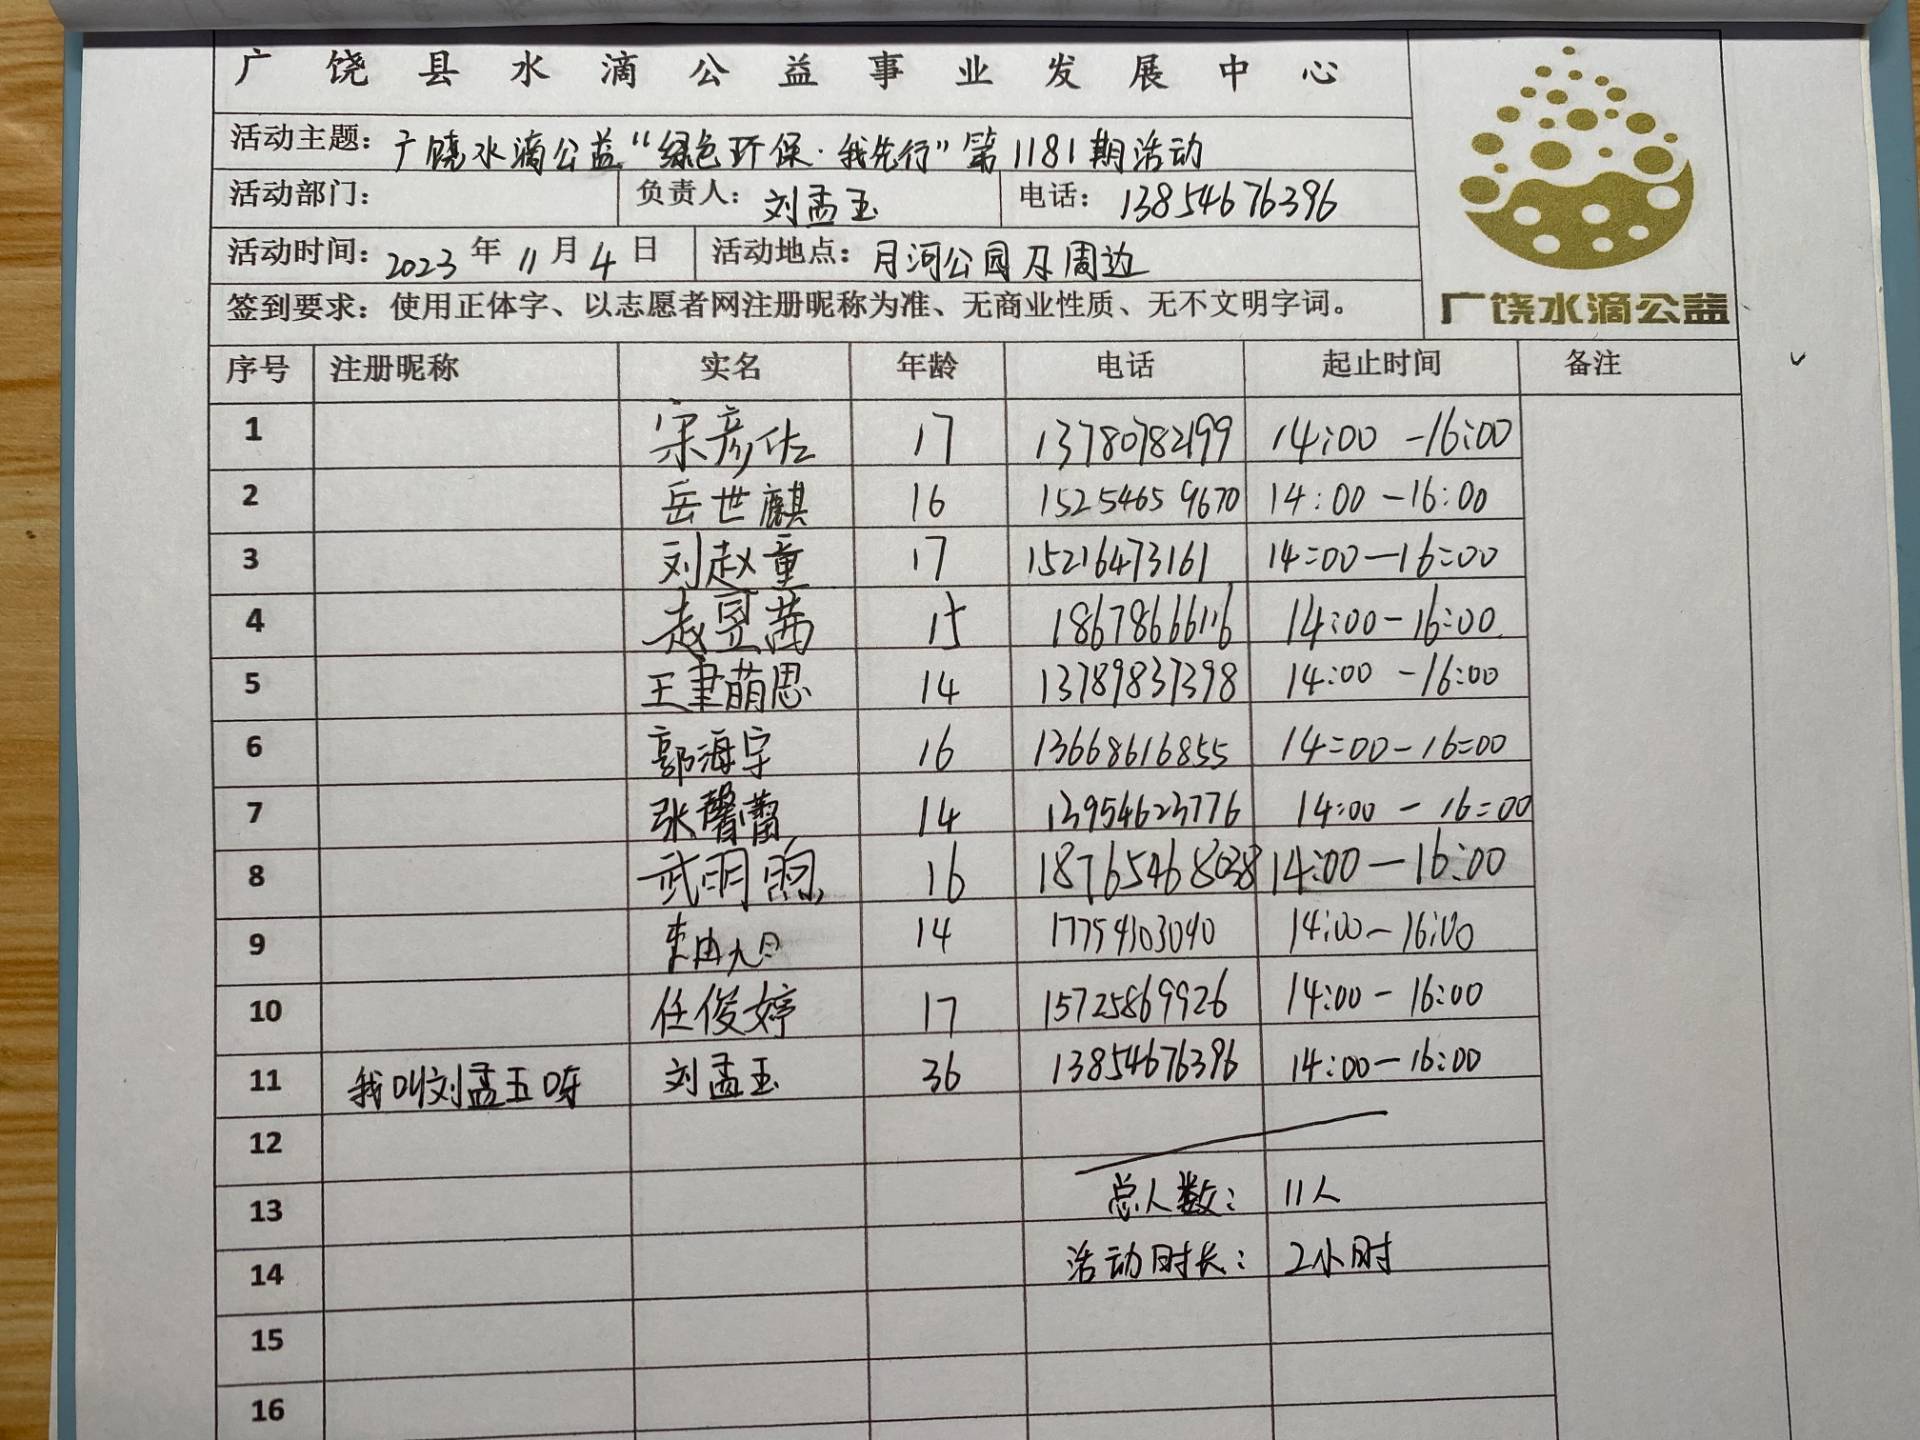 广饶县水滴公益事业发展中心
活动主题：广饶水滴公益“绿色环保·我先行”第1181期活动
活动部门： 负责人：刘孟玉 电话：13854676396
活动时间：2023年11月4日 活动地点：月河公园及周边
签到要求：使用正体字、以志愿者网注册昵称为准、无商业性质、无不文明字词。
广饶水滴公益
序号 注册昵称 实名 年龄 电话 起止时间 备注
1 宋彦佐 17 13780782199 14:00-16:00
2 岳世麒 16 15254659670 14:00-16:00
3 刘赵童 17 15216473161 14:00—16:00
4 赵昱茜 15 18678666116 14:00-16:00
5 王聿萌思 14 13789837398 14:00-16:00
6 郭海宇 16 13668616855 14:00-16:00
7 张馨蕾 14 13954623776 14:00-16:00
8 武明煦 16 18765468038 14:00—16:00
9 14 17754103040 14:00-16:00
10 任俊婷 17 15725869926 14:00-16:00
11 我叫刘孟玉呀 刘孟玉 36 13854676396 14:00-16:00
12
13 总人数： 11人
14 活动时长： 2小时
15
16